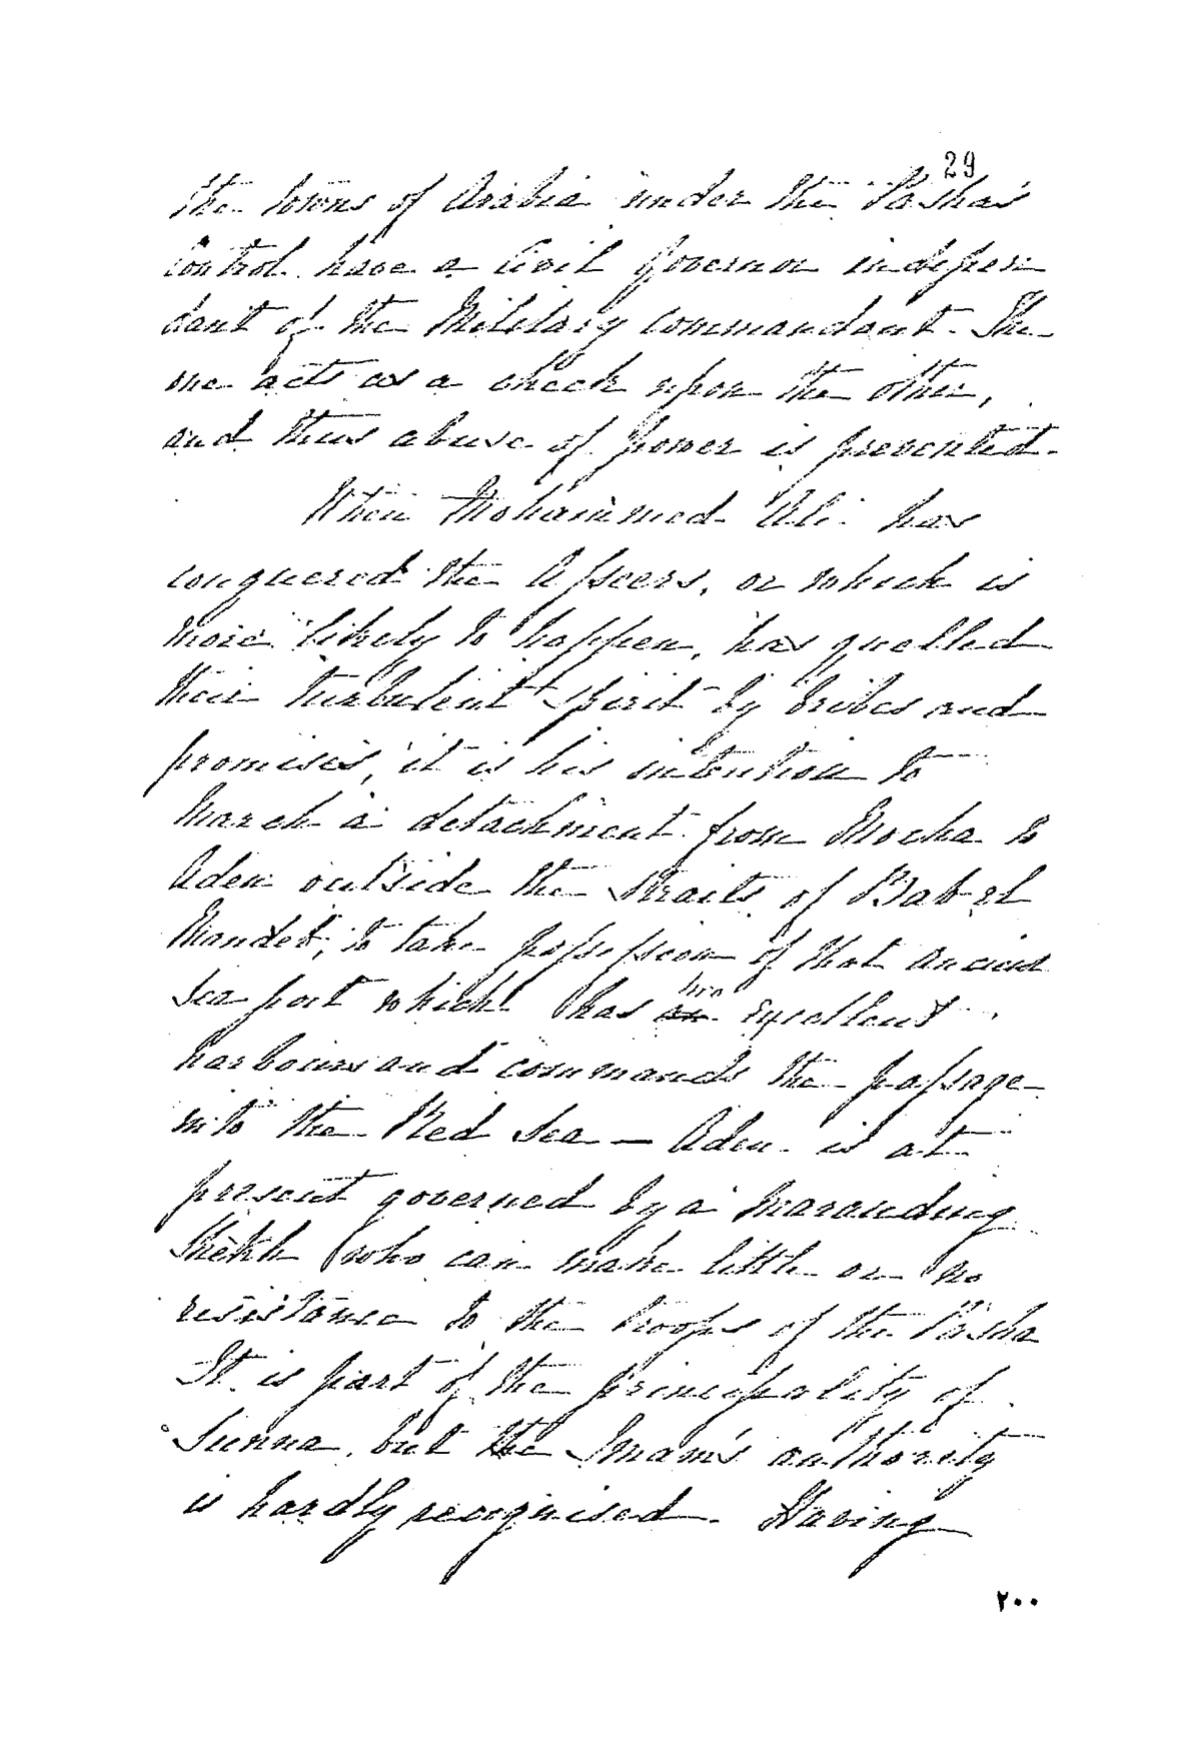 29
the towns of Arabia under the Pasha's
control have a Civil Governor indepen
dant of the Military commandant. The
one acts as a check upon the other,
and thus abuse of power is prevented.
When Mohammed Ali has
conquered the Asseers, or which is
more likely to happen, has quelled
their turbulent spirit by bribes and
promises, it is his intention to
march a detachment from Mocha to
Aden outside the Straits of Bab el
Mandeb, to take possession of that ancient
Sea port which has an two excellent
harbours and commands the passage
into the Red Sea — Aden is at
present governed by a marauding
Sheikh who can make little or no
resistance to the troops of the Pasha
It is part of the principality of
Sunna, but the Imam's authority
is hardly recognised. Having
٢٠٠